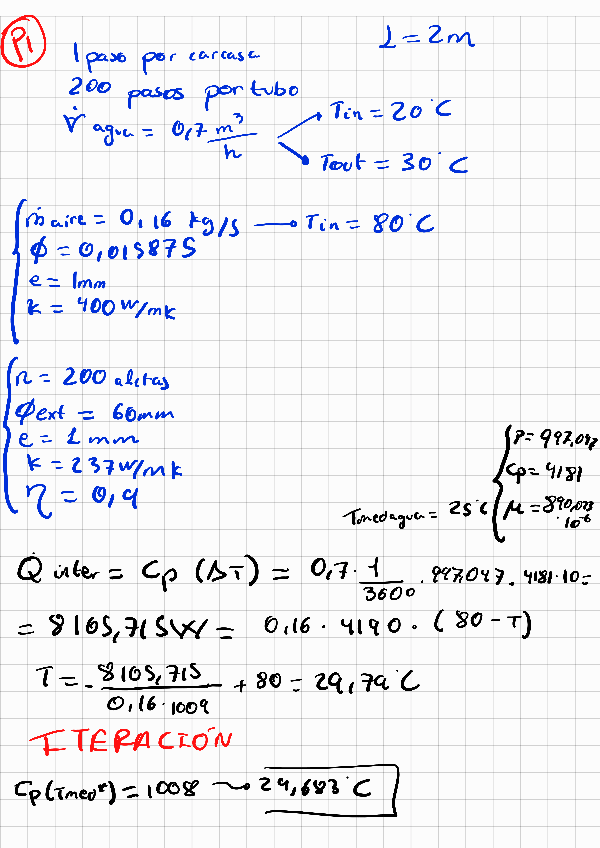 P1
L = 2m
1 paso por carcasa
200 pasos por tubo
V̇ agua = 0,7 m³/h → Tin = 20°C
→ Tout = 30°C
ṁ aire = 0,16 kg/s → Tin = 80°C
ϕ = 0,015875
e = 1mm
k = 400 W/mk
n = 200 aletas
ϕext = 60mm
e = 1 mm
k = 237 W/mk
η = 0,9
Tmed agua = 25°C
ρ = 997,047
Cp = 4181
μ = 890,023 · 10⁻⁶
Q̇ inter = Cp (ΔT) = 0,7 · 1/3600 · 997,047 · 4181 · 10 =
= 8105,715W = 0,16 · 4190 · (80 - T)
T = - 8105,715/0,16 · 1009 + 80 = 29,79°C
ITERACIÓN
Cp(Tmed*) = 1008 → 29,683°C